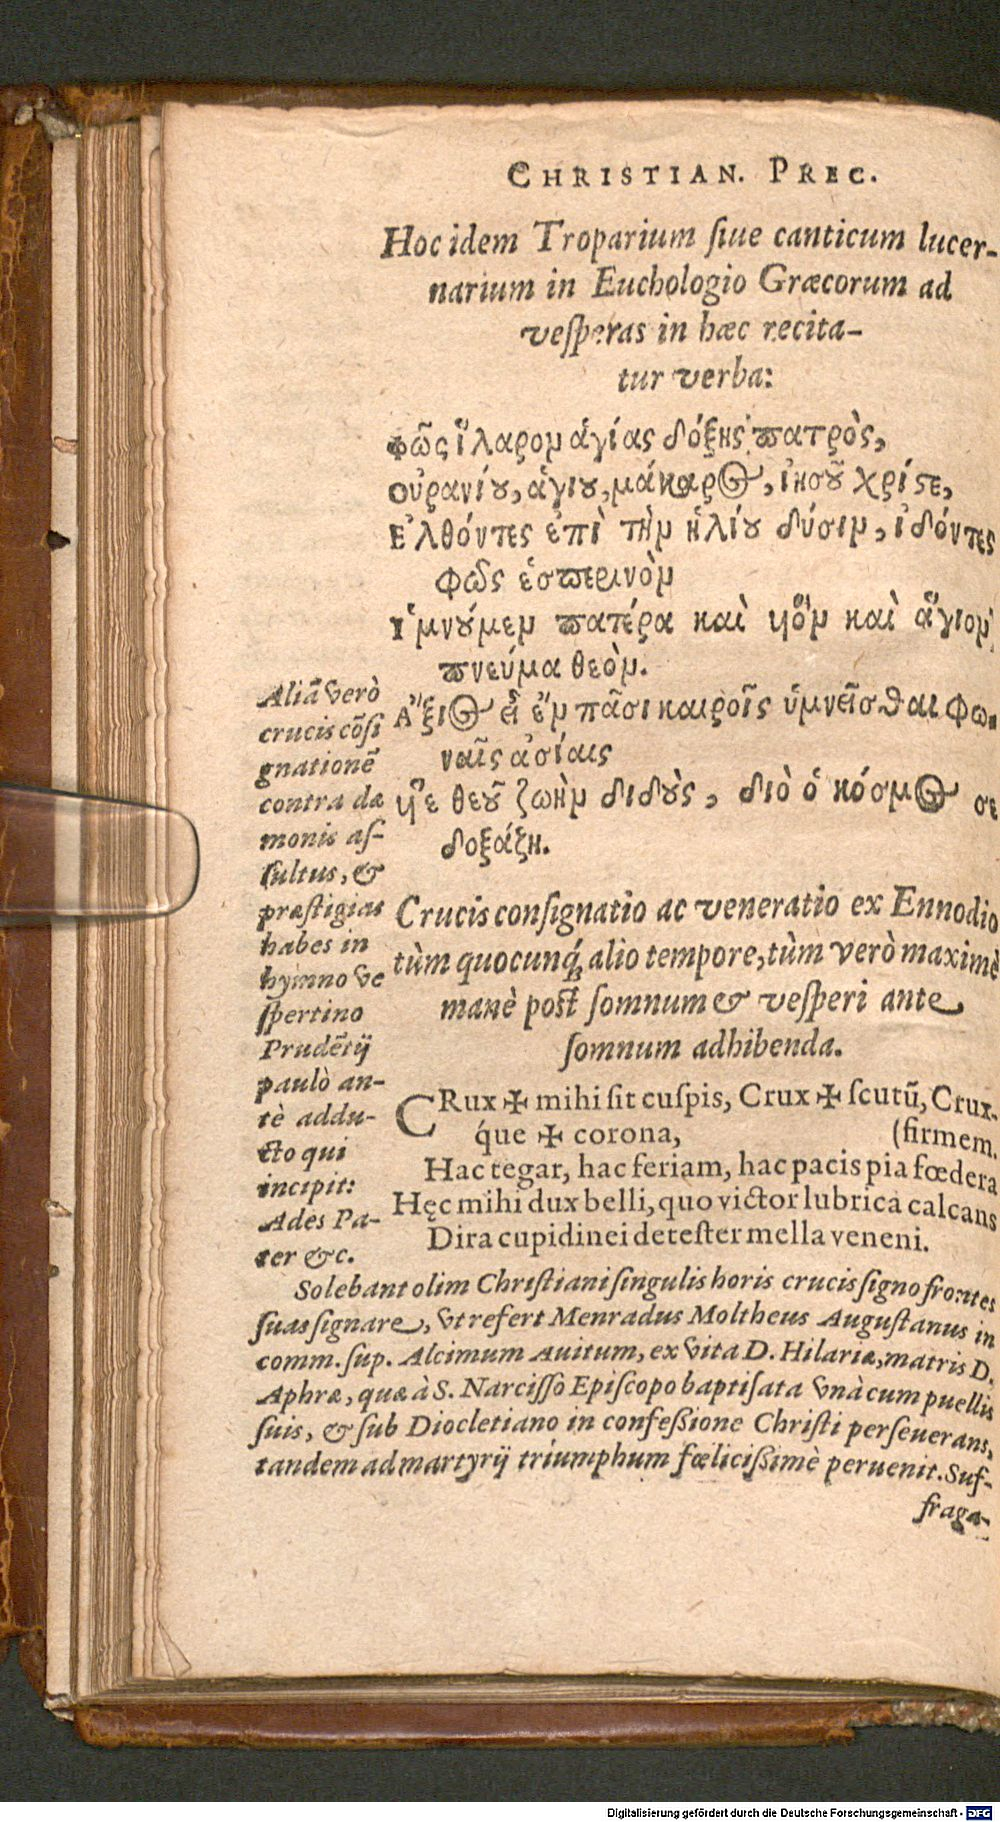 CHRISTIAN. PREC.
Hoc idem Troparium ſiue canticum lucer-
narium in Euchologio Græcorum ad
veſperas in hæc recita-
tur verba:
φῶς ἵλαρομ ἁγίας δόξης πατρὸς,
οὐρανίου, ἁγιου, μάκαρος, ἰησοῦ χρίστε,
Ελθόντες ἐπὶ τὴμ ἡλίου δύσιμ, ἰδόντες
φῶς ἑσπερινὸμ
ὑμνούμεμ πατέρα καὶ υἱὸμ καὶ ἅγιομ
πνεύμα θεὸμ.
Αξιος εἶ ἔμ πᾶσι καιροῖς ὑμνεῖσθαι φω-
ναῖς ἀσίαις
υἷε θεοῦ ζωὴμ διδοὺς, διὸ ὁ κόσμος σε
δοξάζη.
Aliã verò
crucis cõſi
gnationẽ
contra dæ
monis aſ-
ſultus, &
præſtigias
habes in
hymno ve
ſpertino
Prudẽtij
paulò an-
tè addu-
cto qui
incipit:
Ades Pa-
ter &c.
Crucis conſignatio ac veneratio ex Ennodio
tùm quocunq́; alio tempore, tùm verò maximè
manè poſt ſomnum & veſperi ante
ſomnum adhibenda.
CRux ✠ mihi ſit cuſpis, Crux ✠ ſcutũ, Crux-
q́ue ✠ corona, (firmem.
Hac tegar, hac feriam, hac pacis pia fœdera
Hęc mihi dux belli, quo victor lubrica calcans
Dira cupidinei deteſter mella veneni.
Solebant olim Chriſtiani ſingulis horis crucis ſigno frontes
ſuas ſignare, vt refert Menradus Moltheus Auguſtanus in
comm. ſup. Alcimum Auitum, ex vita D. Hilariæ, matris D.
Aphræ, quæ à S. Narciſſo Epiſcopo baptiſata vnà cum puellis
ſuis, & ſub Diocletiano in confeßione Chriſti perſeuerans,
tandem ad martyrij triumphum fœlicißimè peruenit. Suf-
fraga-
Digitalisierung gefördert durch die Deutsche Forschungsgemeinschaft - DFG